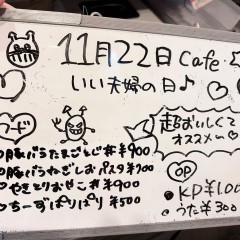 11月22日 Cafe
いい夫婦の日♪
フード
豚バラたまごとじ丼 ¥900
豚バラねぎしおパスタ ¥900
やきとりおせこ丼 ¥900
ちーずぱりぱり ¥500
超おいしくて
オススメ〜
OP
・KP ¥1.00
・うた ¥300